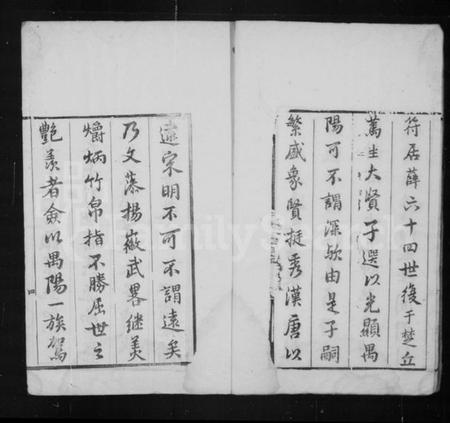 符居薛六十四世後于楚丘
篤生大賢子選以光顯禺
陽可不謂深歟由是子嗣
繁盛象賢挺秀漢唐以
迨宋明不可不謂遠矣
乃文藻揚徽武畧継美
爝炳竹帛指不勝屈世之
艷羨者僉以禺陽一族駕
四
FamilySearch